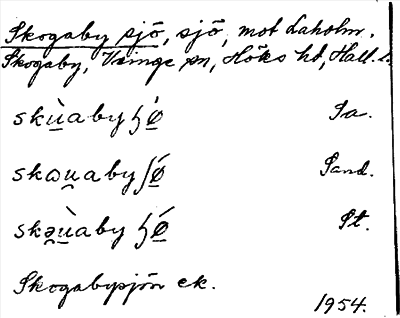 Skogaby sjö, sjö, mot Laholm.
Skogaby, Veinge sn, Höks hd, Hall. l.
skùabyɧǿ Sa.
skωu̯abyʃǿ Sand.
skə̯ùabyɧǿ St.
Skogabysjön ek.
1954.